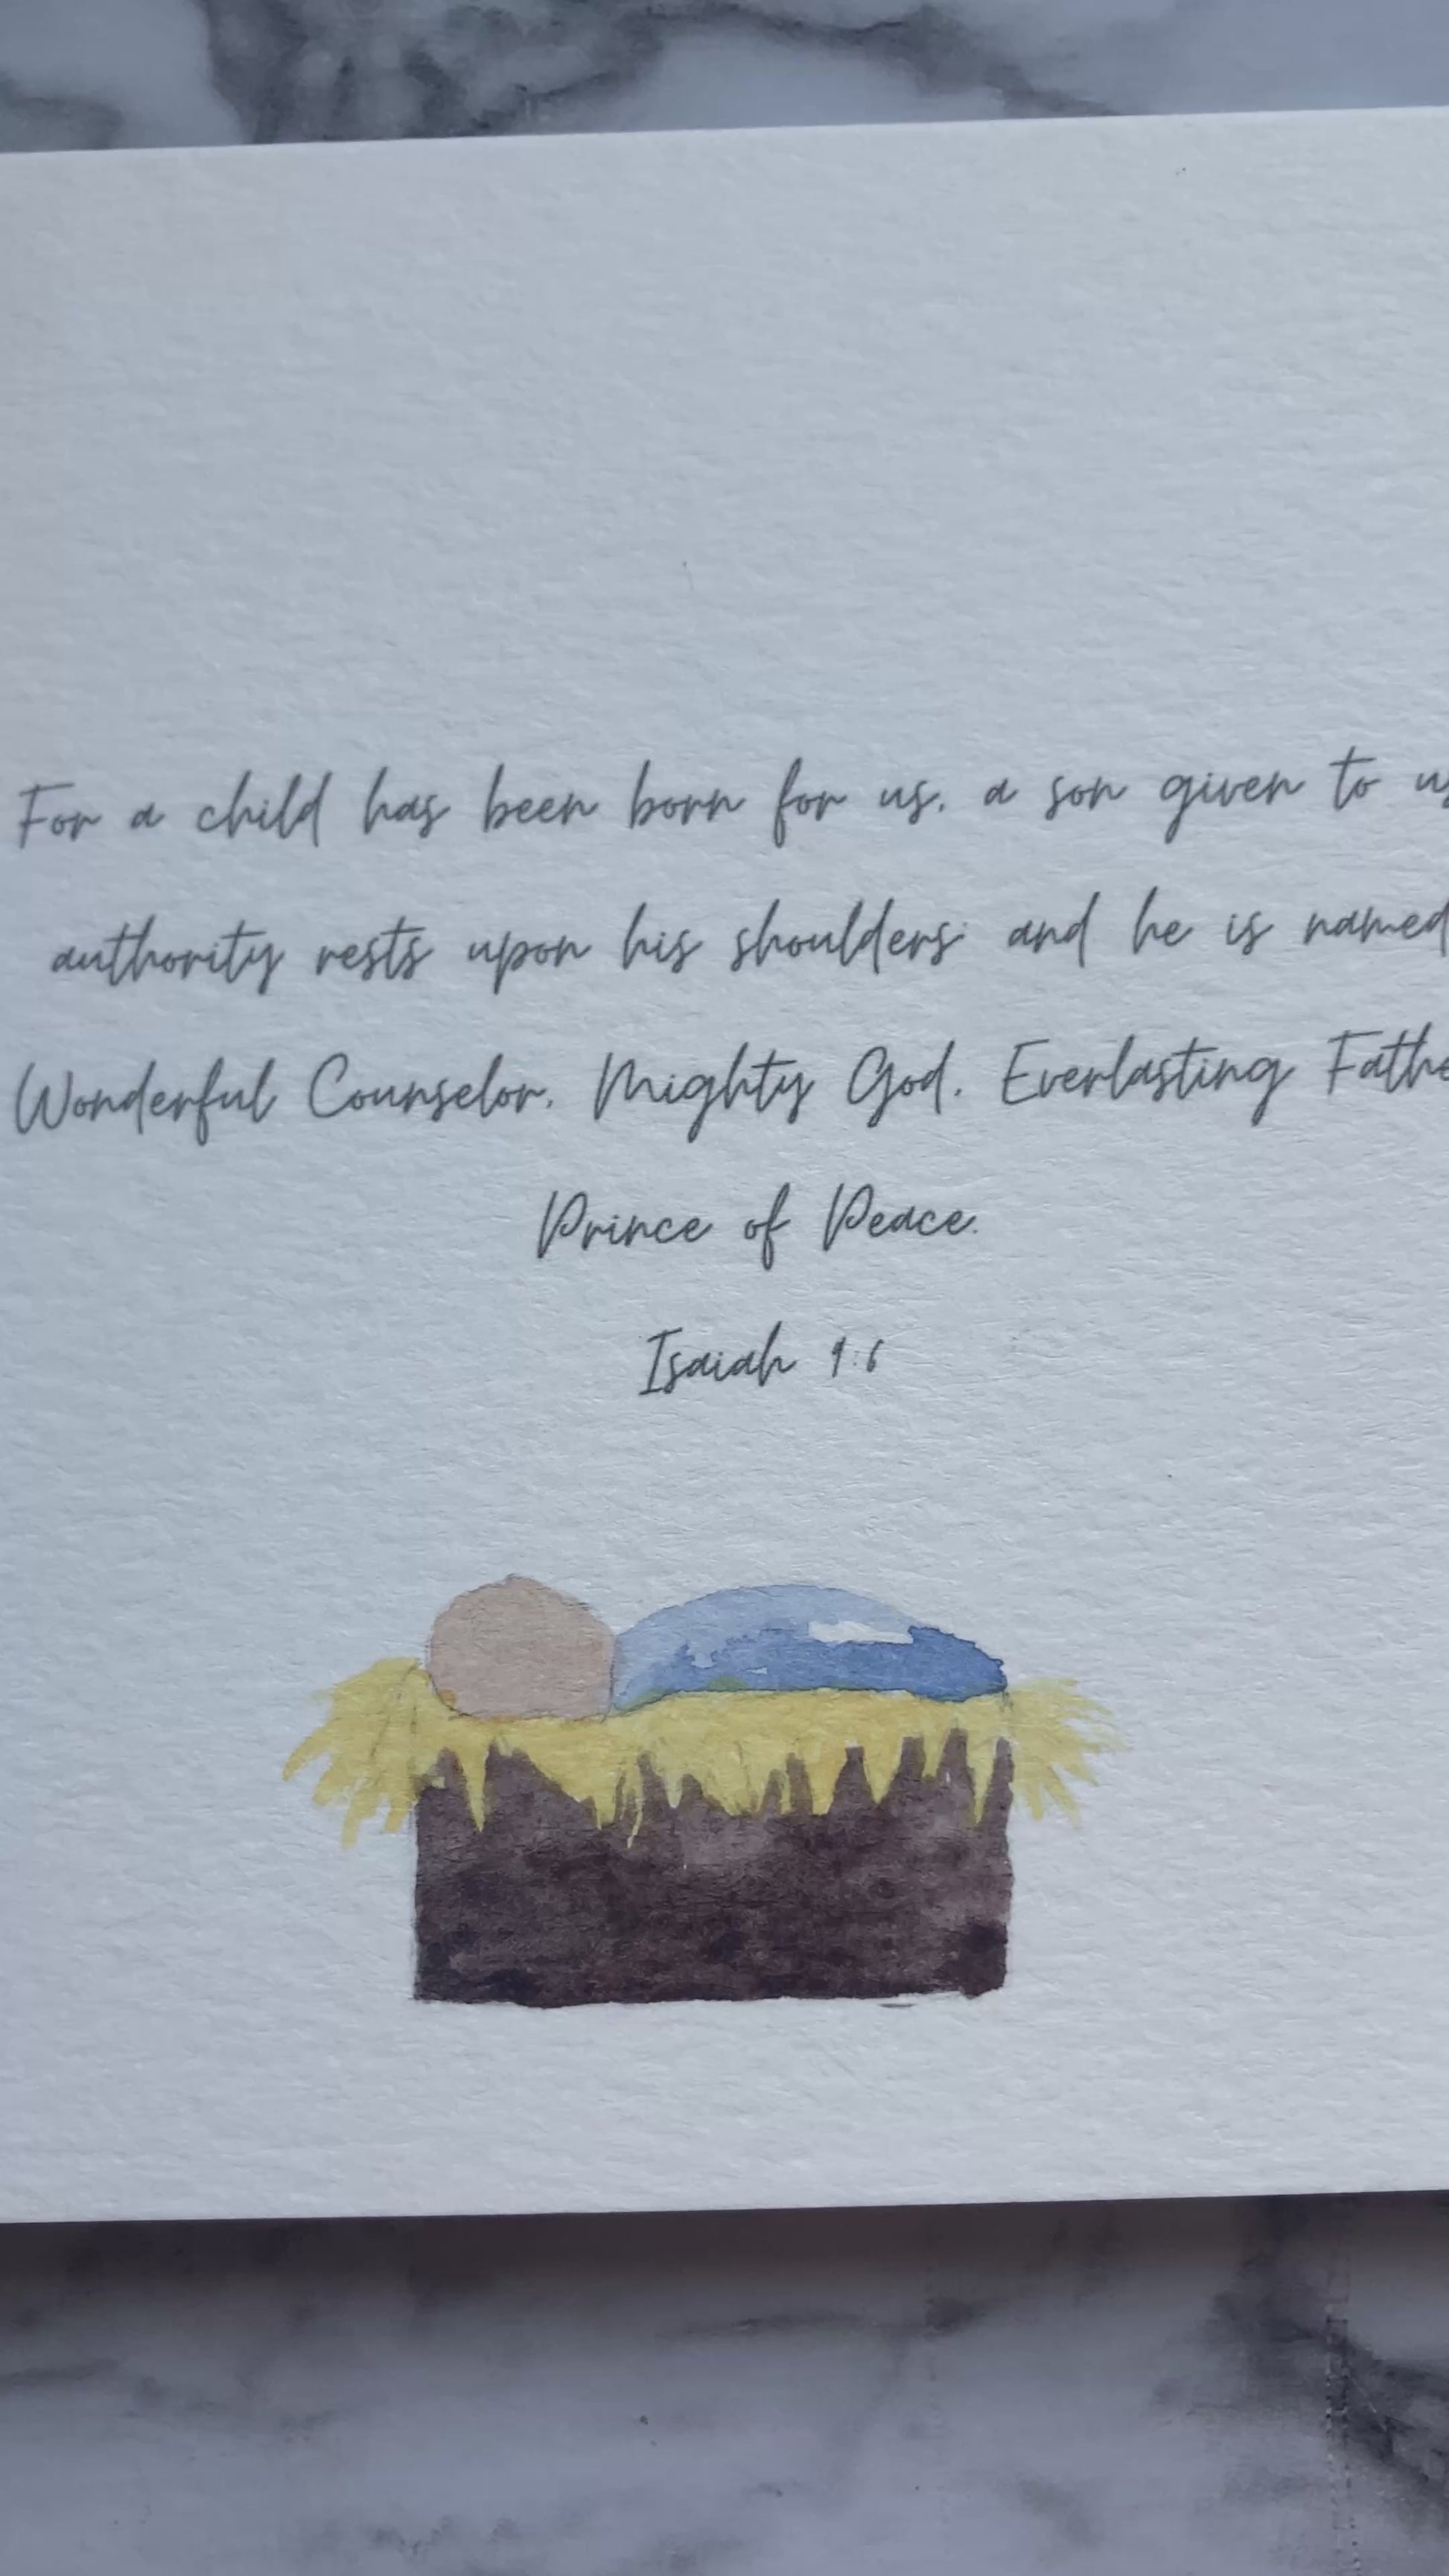 For a child has been born for us, a son given to us
authority rests upon his shoulders; and he is named
Wonderful Counselor, Mighty God, Everlasting Fathe
Prince of Peace.
Isaiah 9:6